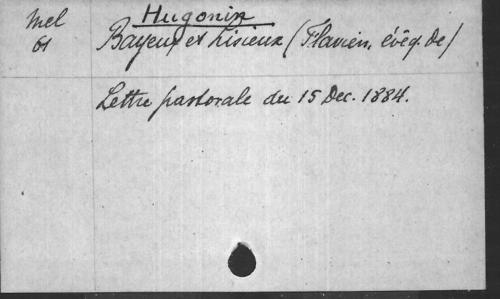 Mel
61
Hugonin
Bayeux et Lisieux (Flavien, évêq. de)
Lettre pastorale du 15 Dec. 1884.